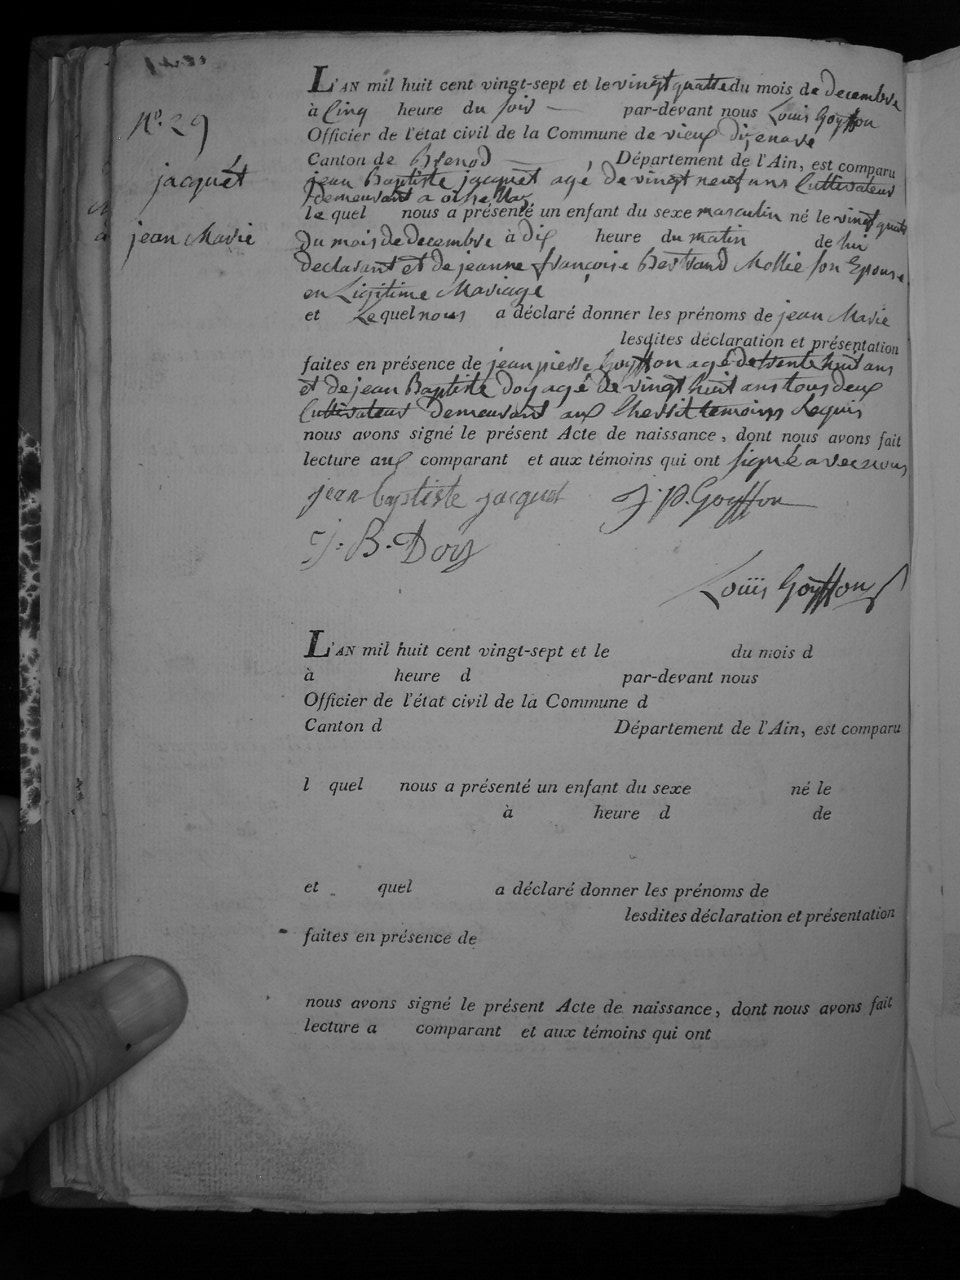 N.° 29
jacquét
jean Marie
L'AN mil huit cent vingt-sept et le vingt quattre du mois de decembre
à Cinq heure du soir — par-devant nous Louis Goÿffon
Officier de l'état civil de la Commune de vieux d'izenave
Canton de Brenod — , Département de l'Ain, est comparu
jean Baptiste jacquét agé de vingt neuf ans Cultivateur
demeurant a
le quel nous a présenté un enfant du sexe masculin né le vingt quatre
du mois de decembre à dix heure du matin de lui
declarant et de jeanne françoise Bertrand Mollie son Epouse
en Ligitime Mariage
et Le quel nous a déclaré donner les prénoms de jean Marie
lesdites déclaration et présentation
faites en présence de jean pierre Goÿffon agé de trente huit ans
et de jean Baptiste Doy agé de vingt huit ans tous deux
Cultivateur demeurant aux temoins Lequis
nous avons signé le présent Acte de naissance, dont nous avons fait
lecture aux comparant et aux témoins qui ont signé avec nous
jean baptiste jacquet J. P. Goyffon
J. B. Doy
Louis Goÿffon
L'AN mil huit cent vingt-sept et le du mois d
à heure d par-devant nous
Officier de l'état civil de la Commune d
Canton d Département de l'Ain, est comparu
l quel nous a présenté un enfant du sexe né le
à heure d de
et quel a déclaré donner les prénoms de
lesdites déclaration et présentation
faites en présence de
nous avons signé le présent Acte de naissance, dont nous avons fait
lecture a comparant et aux témoins qui ont